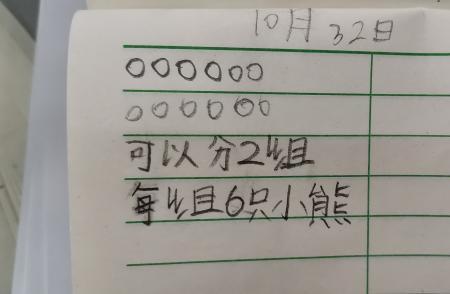 10月32日
000000
000000
可以分2组
每组6只小熊